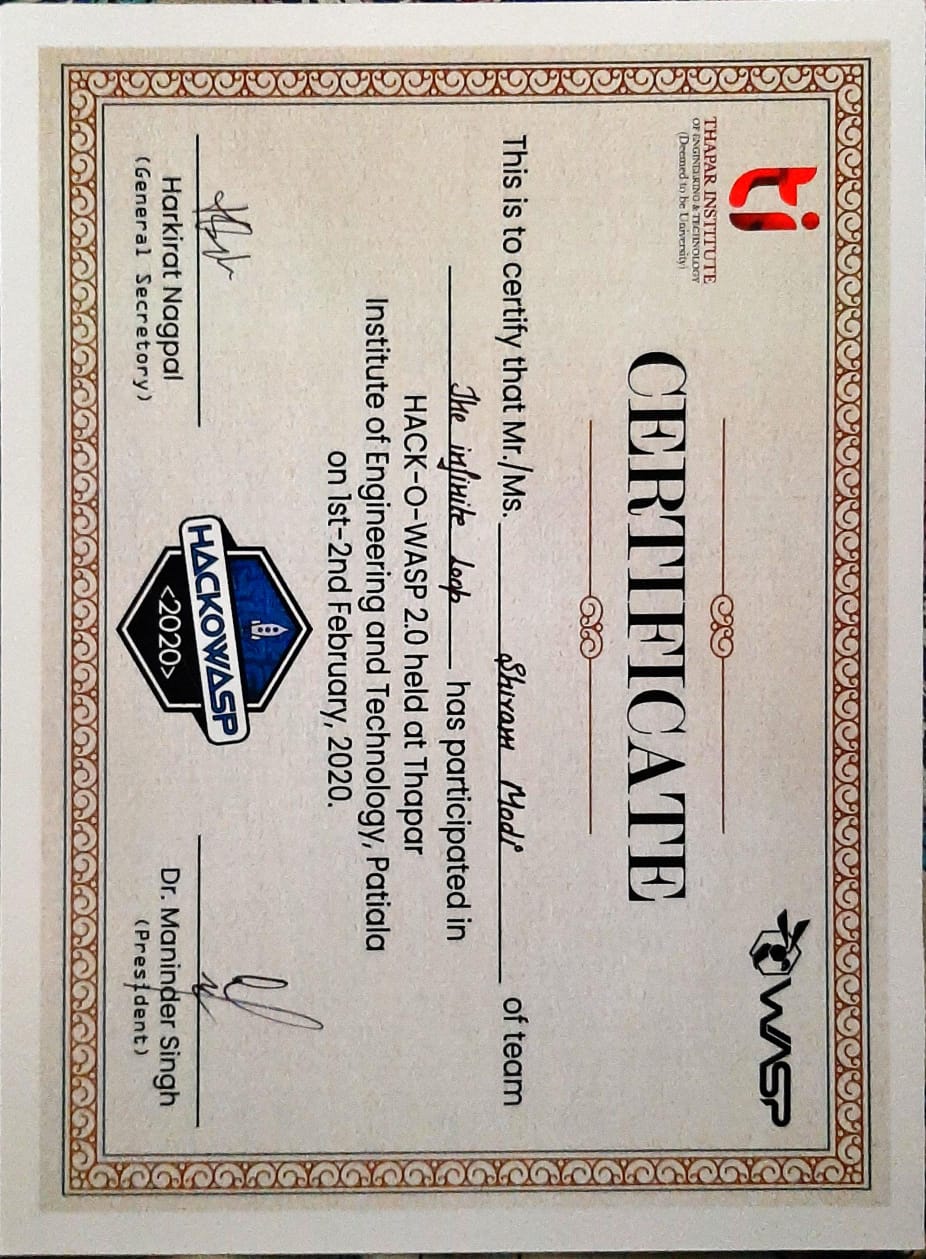 ti
THAPAR INSTITUTE
OF ENGINEERING & TECHNOLOGY
(Deemed to be University)
OWASP
CERTIFICATE
This is to certify that Mr./Ms. Shivam Modi of team
The infinite loop has participated in
HACK-O-WASP 2.0 held at Thapar
Institute of Engineering and Technology, Patiala
on 1st-2nd February, 2020.
Harkirat Nagpal
(General Secretory)
HACKOWASP
<2020>
Dr. Maninder Singh
(President)